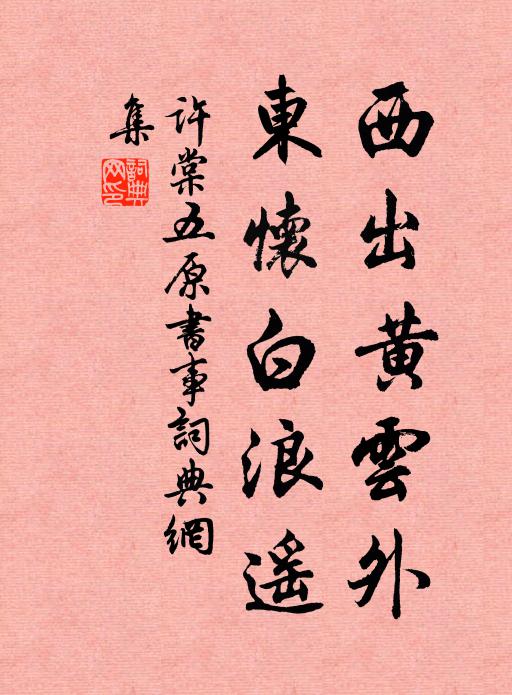 西出黄雲外
東懷白浪遥
許棠五原書事詞典網
集
詞典
网印